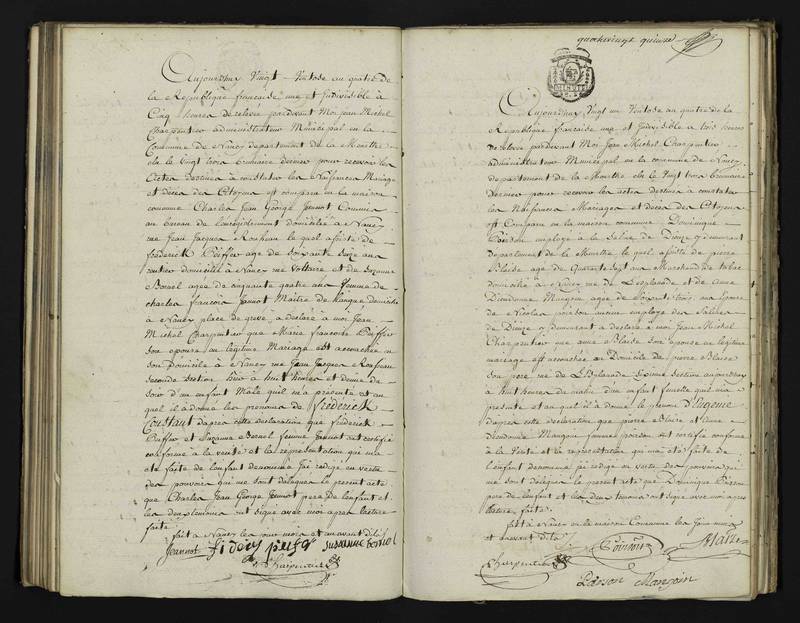 Aujourdhuy Vingt Ventose an quatre de
la Republique francaise une et Indivisible à
Cinq heures de relevée pardevant Moi jean Michel
Charpentier administrateur Municipal en la
Commune de Nancy departement de la Meurthe
elu le Vingt trois brumaire dernier pour recevoir les
Actes destinés à constater les Naissances Mariages
et décès des Citoyens est comparu en la maison
commune Charles Jean George Jeannot Commis
au bureau de l'enregistrement domicilié à Nancy
rue Jean Jacques Rousseau le quel assisté de
frederick Pfeffer age de soixante ans
rentier domicilié à Nancy rue Voltaire et de Suzanne
Bernel agée de cinquante quatre ans femme de
charles francois Jannot Maître de Langue domicilié
à Nancy place de greve, a déclaré à moi Jean
Michel Charpentier que Marie francoise Pfeffer
son epouse en légitime Mariage est accouchée en
son domicile à Nancy rue Jean Jacques Rousseau
seconde section hier à huit heures et demie du
soir d'un enfant Male quil m'a présenté et au
quel il a donné les prenoms de frédérick
Constant d'apres cette déclaration que fréderick
Pfeffer et Suzanne Bernel femme Jannot ont certifié
conforme à la verité et la représentation qui m'a
eté faite de lenfant denommé J'ai redigé en vertu
des pouvoirs qui me sont delegués le présent acte
que Charles Jean George Jeannot pere de lenfant et
les deux temoins ont signé avec moi apres lecture
faite
fait à Nancy les jour mois et an avant dits
Jeannot suzanne bernel
Charpentier
quatrevingt quinze
Aujourdhuy Vingt un Ventose an quatre de la
Republique francaise une et Indivisible à trois heures
de relevée pardevant Moi Jean Michel Charpentier
administrateur Municipal en la commune de Nancy
departement de la Meurthe elu le Vingt trois brumaire
dernier pour recevoir les actes destinés à constater
les Naissances Mariages et décès des Citoyens
est Comparu en la maison commune Dominique
Poirson employé à la Saline de Dieuze y demeurant
departement de la Meurthe le quel assisté de pierre
Blaise age de Quarante sept ans Marchand de tabac
domicilié à Nancy rue de L'Esplanade et de anne
Dieudonnée Mangin agée de ans epouse
de Nicolas poirson ancien employé des Salines
de Dieuze y demeurant a déclaré à moi Jean Michel
Charpentier que anne Blaise son epouse en légitime
mariage est accouchée au Domicile de pierre Blaise
son pere rue de L'Esplanade Sixieme Section aujourdhuy
à huit heures du matin d'un enfant femelle quil m'a
présenté et au quel il a donné le prenom d'Eugenie
d'apres cette déclaration que pierre Blaise et anne
dieudonnée Mangin femme poirson ont certifié conforme
à la Verité et la representation qui m'a eté faite de
l'enfant denommé j'ai redigé en vertu des pouvoirs qui
me sont délégués le présent acte que Dominique Poirson
pere de lenfant et les deux temoins ont signé avec moi apres
lecture faite.
fait à Nancy en la maison Commune les Jour mois
et an avant dits
Poirson Blaise
Charpentier
Poirson Mangin